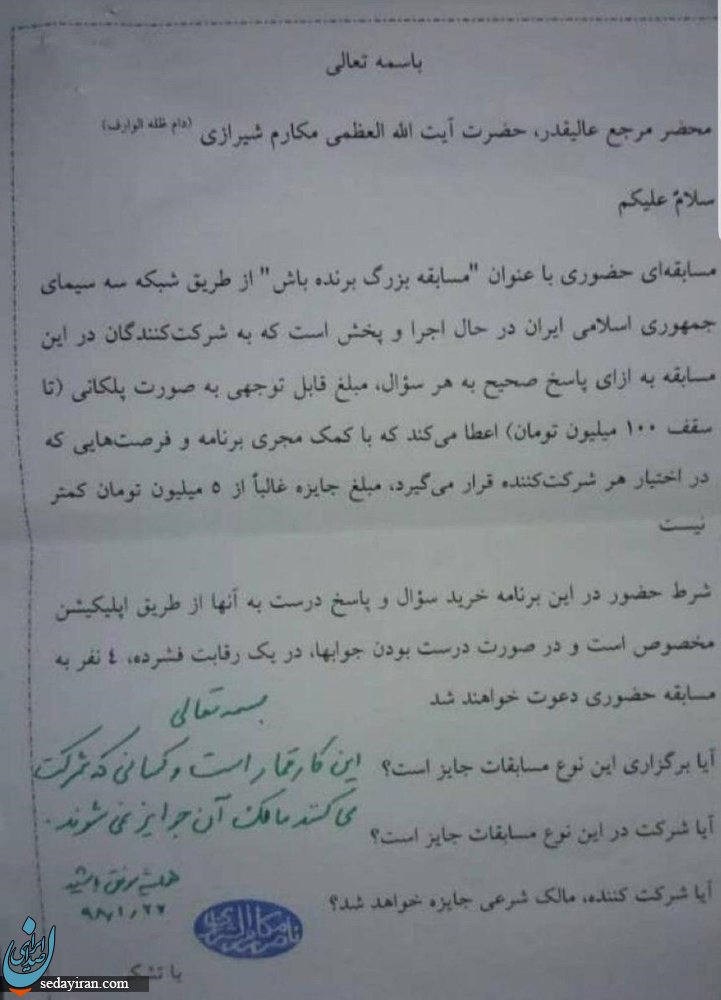 باسمه تعالی
محضر مرجع عالیقدر، حضرت آیت الله العظمی مکارم شیرازی (دام ظله الوارف)
سلامٌ علیکم
مسابقه‌ای حضوری با عنوان "مسابقه بزرگ برنده باش" از طریق شبکه سه سیمای
جمهوری اسلامی ایران در حال اجرا و پخش است که به شرکت‌کنندگان در این
مسابقه به ازای پاسخ صحیح به هر سؤال، مبلغ قابل توجهی به صورت پلکانی (تا
سقف ۱۰۰ میلیون تومان) اعطا می‌کند که با کمک مجری برنامه و فرصت‌هایی که
در اختیار هر شرکت‌کننده قرار می‌گیرد، مبلغ جایزه غالباً از ۵ میلیون تومان کمتر
نیست
شرط حضور در این برنامه خرید سؤال و پاسخ درست به آنها از طریق اپلیکیشن
مخصوص است و در صورت درست بودن جوابها، در یک رقابت فشرده، ٤ نفر به
مسابقه حضوری دعوت خواهند شد
بسمه تعالی
آیا برگزاری این نوع مسابقات جایز است؟
این کار قمار است و کسانی که شرکت
آیا شرکت در این نوع مسابقات جایز است؟
می کنند مالک آن جوایز نمی شوند.
آیا شرکت کننده، مالک شرعی جایزه خواهد شد؟
همیشه موفق باشید
۹۸/۱/۲۲
ناصر مکارم الشیرازی
با تشکر
صدای ایران
sedayiran.com